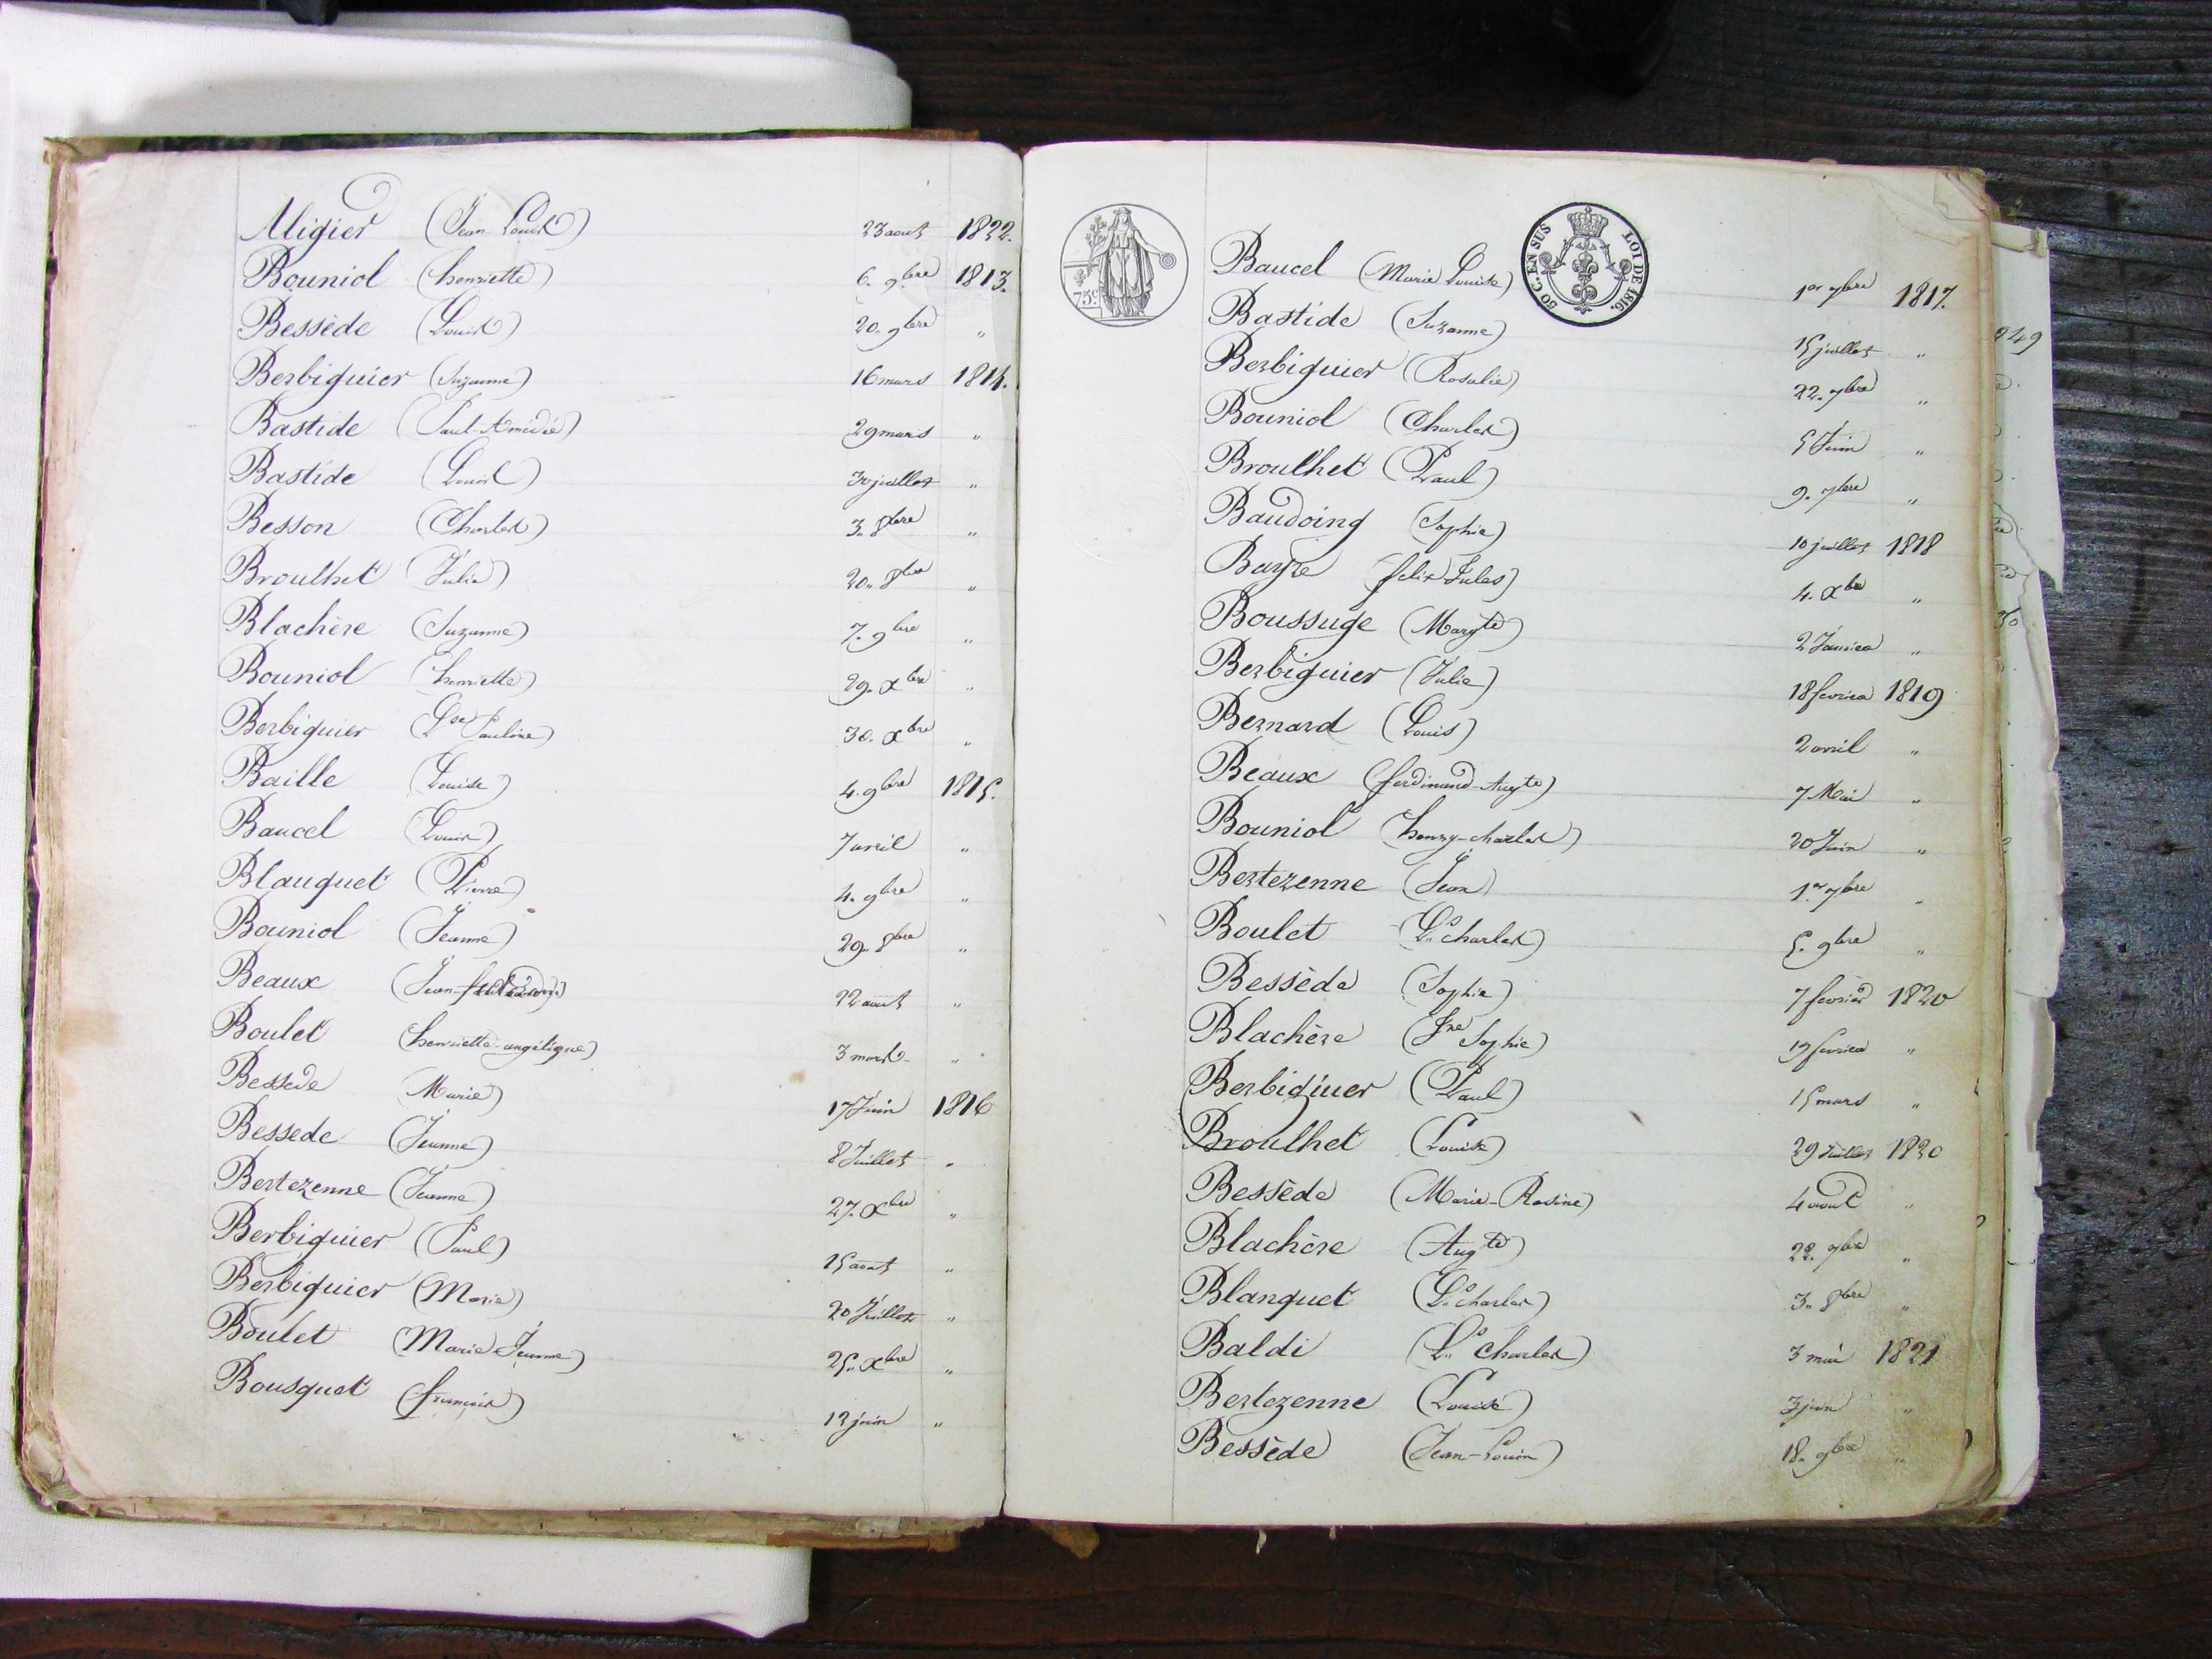 Aligier (Jean Louis) 23 aout 1822.
Bouniol (henriette) 6. 9bre 1813.
Bessède (Louis) 20. 9bre "
Berbiguier (Suzanne) 16 mars 1814.
Bastide (Paul-Amédée) 29 mars "
Bastide (Louis) 30 juillet "
Besson (Charles) 3. 8bre "
Broulhet (Julie) 20. 8bre "
Blachère (Suzanne) 7. 9bre "
Bouniol (henriette) 29. Xbre "
Berbiguier (Lse Pauline) 30. Xbre "
Baille (Louise) 4. 9bre 1815.
Baucel (Louis) 7 avril "
Blauquet (Pierre) 4. 9bre "
Bouniol (Jeanne) 29. 8bre "
Beaux (Jean- 22 aout "
Boulet (henriette-angélique) 3 mars "
Bessede (Marie) 17 Juin 1816
Bessede (Jeanne) 8 Juillet "
Bertezenne (Jeanne) 27. Xbre "
Berbiguier (Paul) 15 aout "
Berbiguier (Marie) 20 Juillet "
Boulet (Marie Jeanne) 25. Xbre "
Bousquet (françois) 12 juin "
75c.
50 C. EN SUS LOI DE 1816.
Baucel (Marie Louise) 1er 7bre 1817.
Bastide (Suzanne) 15 juillet "
Berbiguier (Rosalie) 22. 7bre "
Bouniol (Charles) 5 Juin "
Broulhet (Paul) 9. 7bre "
Baudoing (Sophie) 10 juillet 1818
Bayze (felix Jules) 4. Xbre "
Boussuge (Margte) 2 Janvier "
Berbiguier (Julie) 18 fevrier 1819
Bernard (Louis) 2 avril "
Beaux (ferdinand-Augte) 7 Mai "
Bouniol (henry-charles) 20 Juin "
Bertezenne (Jean) 1er 7bre "
Boulet (Ls charles) 5. 9bre "
Bessède (Sophie) 7 fevrier 1820
Blachère (Jne Sophie) 19 fevrier "
Berbiguier (Paul) 15 mars "
Broulhet (Louise) 29 Juillet 1820
Bessède (Marie-Rosine) 4 aout "
Blachère (Augte) 22. 9bre "
Blanquet (Ls charles) 3. 8bre "
Baldi (Ls Charles) 3 mai 1821
Bertezenne (Louise) 3 juin "
Bessède (Jean-Louis) 18. 9bre "